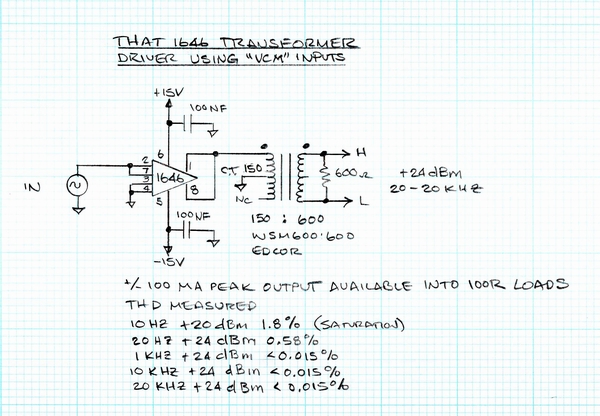 THAT 1646 TRANSFORMER
DRIVER USING "VCM" INPUTS
+15V
100NF
6
2
7
3
4
1646
1
8
5
IN
100NF
-15V
C.T.
150
NC
H
600Ω
L
+24dBm
20-20KHZ
150 : 600
WSM600:600
EDCOR
+/- 100 MA PEAK OUTPUT AVAILABLE INTO 100R LOADS
THD MEASURED
10 HZ +20 dBm 1.8% (SATURATION)
20 HZ +24 dBm 0.58%
1 KHZ +24 dBm <0.015%
10 KHZ +24 dBm <0.015%
20 KHZ +24 dBm <0.015%